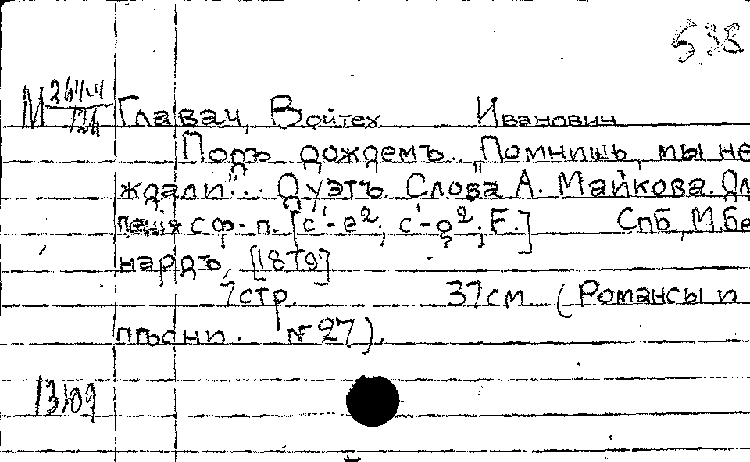 538
М 364-4/126 Главач, Войтех Иванович
Подъ дождемъ. „Помнишь, мы не
ждали"... Дуэтъ. Слова А. Майкова. Дл
пенія с ф-п. [c¹-e²; c¹-g²; F.] Спб, М. Бе
нардъ, [1878]
7 стр. 37 см (Романсы и
пѣсни. № 27).
13109